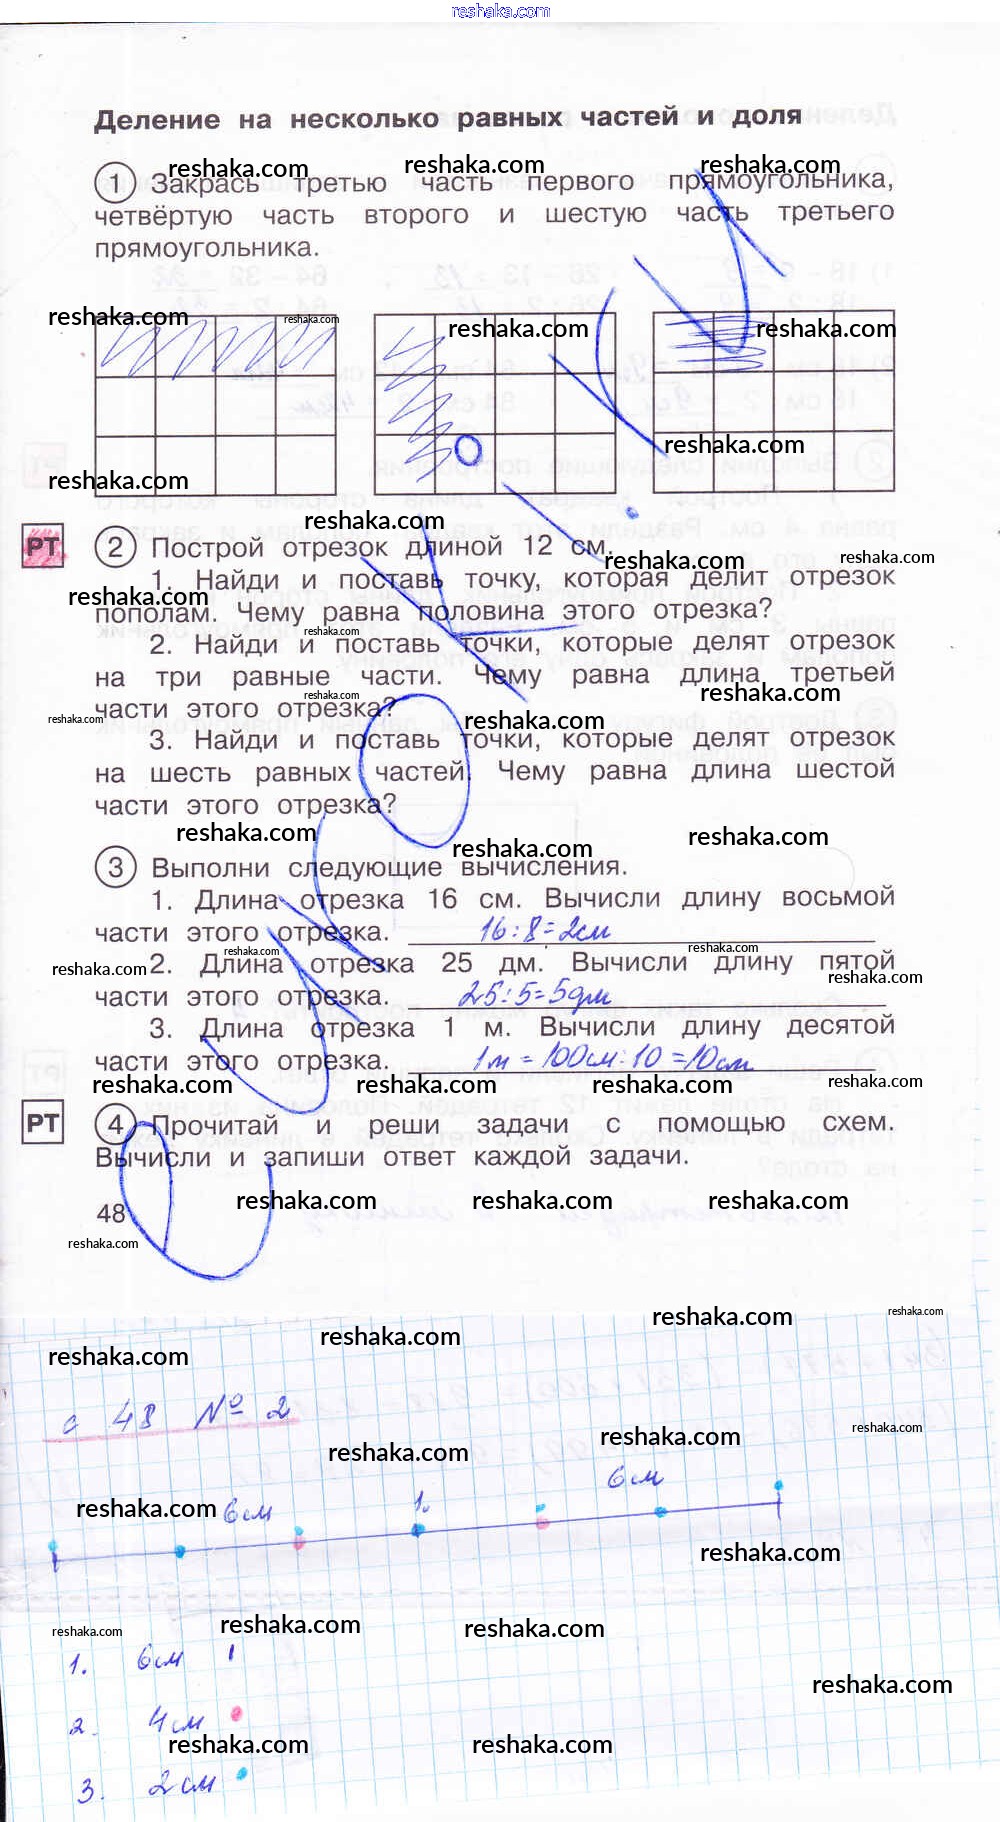 reshaka.com
Деление на несколько равных частей и доля
reshaka.com reshaka.com reshaka.com
1 Закрась третью часть первого прямоугольника,
четвёртую часть второго и шестую часть третьего
прямоугольника.
reshaka.com reshaka.com reshaka.com reshaka.com
reshaka.com
reshaka.com
reshaka.com
РТ 2 Построй отрезок длиной 12 см.
reshaka.com reshaka.com
1. Найди и поставь точку, которая делит отрезок
reshaka.com
пополам. Чему равна половина этого отрезка?
reshaka.com
2. Найди и поставь точки, которые делят отрезок
на три равные части. Чему равна длина третьей
reshaka.com reshaka.com
части этого отрезка?
reshaka.com reshaka.com
3. Найди и поставь точки, которые делят отрезок
на шесть равных частей. Чему равна длина шестой
части этого отрезка?
reshaka.com reshaka.com reshaka.com
3 Выполни следующие вычисления.
1. Длина отрезка 16 см. Вычисли длину восьмой
части этого отрезка. 16:8=2см
reshaka.com reshaka.com
reshaka.com reshaka.com
2. Длина отрезка 25 дм. Вычисли длину пятой
части этого отрезка. 25:5=5дм
3. Длина отрезка 1 м. Вычисли длину десятой
части этого отрезка. 1м = 100см:10=10см
reshaka.com reshaka.com reshaka.com reshaka.com
РТ 4 Прочитай и реши задачи с помощью схем.
Вычисли и запиши ответ каждой задачи.
reshaka.com reshaka.com reshaka.com
48
reshaka.com
reshaka.com reshaka.com reshaka.com
reshaka.com
с 48 № 2
reshaka.com reshaka.com reshaka.com
6см
reshaka.com 6см 1.
reshaka.com
reshaka.com reshaka.com reshaka.com
1. 6см
reshaka.com
2. 4см
reshaka.com reshaka.com
3. 2см